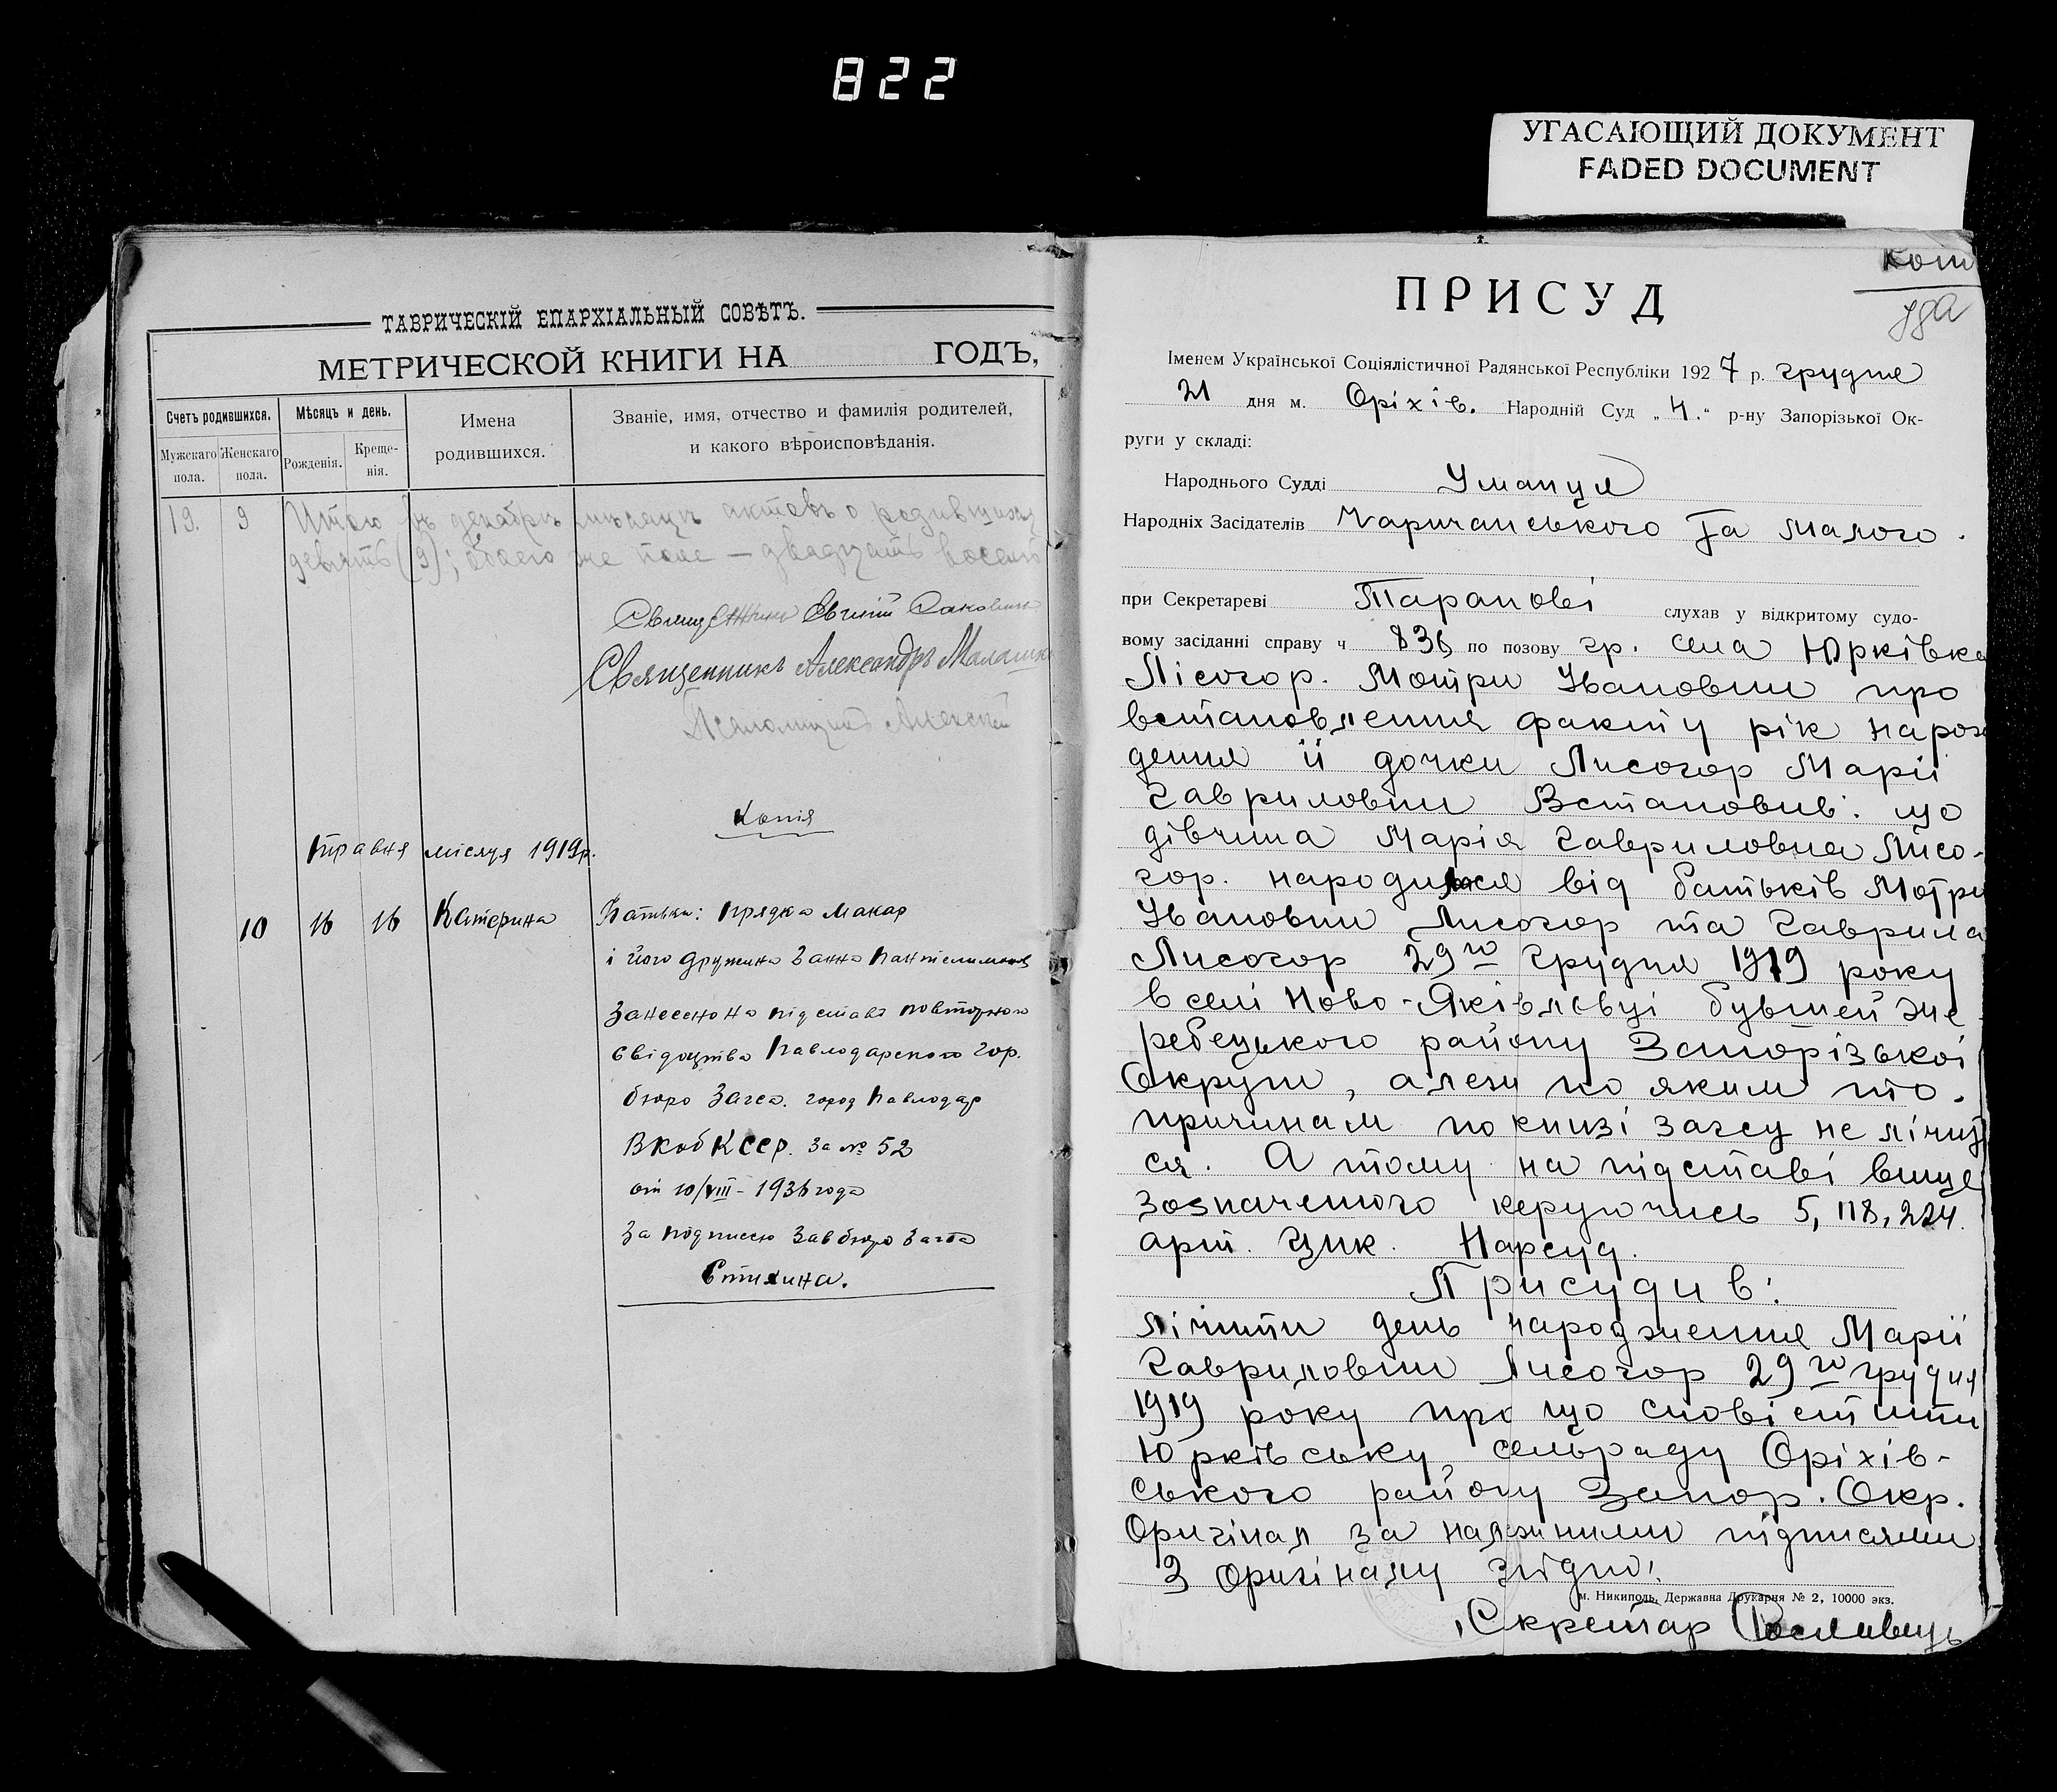 822
УГАСАЮЩИЙ ДОКУМЕНТ
FADED DOCUMENT
ТАВРИЧЕСКІЙ ЕПАРХІАЛЬНЫЙ СОВѢТЪ.
МЕТРИЧЕСКОЙ КНИГИ НА ГОДЪ,
Счетъ родившихся.
Мужскаго пола.
Женскаго пола.
Мѣсяцъ и день.
Рожденія.
Креще-
нія.
Имена
родившихся.
Званіе, имя, отчество и фамилія родителей,
и какого вѣроисповѣданія.
19. 9 Итого въ декабрѣ мѣсяцѣ актовъ о родившихся
девять (9); обоего же пола — двадцать восемь
Священник Евгений
Священникъ Александръ
Псаломщикъ Алексей
Копія
травня місяця 1919р.
10 16 16 Катерина Батьки: Прядка Макар
і його дружина Ганна
Занесено на підставі повторного
свідоцтва Павлодарского гор.
бюро Загса. город Павлодар
ВКоб КССР. за № 52
от 10/VIII - 1936 года
За подписею Зав бюро Загса
Копт
ПРИСУД
Іменем Української Соціялістичної Радянської Республіки 1927 р. грудня
21 дня м. Оріхів. Народній Суд „4.“ р-ну Запорізької Ок-
руги у складі:
Народнього Судді Уманця
Народніх Засідателів Чаричанського та Малого.
при Секретареві Таранові слухав у відкритому судо-
вому засіданні справу ч 836 по позову гр. села Юрківка
Лісогор. Мотри Ивановни про
встановлення факту рік нарож
дення її дочки Лисогор Марії
Гавриловни Встановив: що
дівчина Марія Гавриловна Лисо-
гор. народилася від батьків Мотри
Ивановни Лисогор та Гаврила
Лисогор 29го грудня 1919 року
в селі Ново-Яківлівці бувшей Же
ребецького району Запорізької
Округи, але по яким то
причинам по книзі загсу не лічит
ся. А тому на підставі вище
зазначеного керуючись 5, 118, 224.
арт. ЦПК. Нарсуд.
Присудив:
Лічити день народження Марії
Гавриловни Лисогор 29го грудня
1919 року про що сповістити
Юрківську сельраду Оріхів-
ського району Запор. Окр.
Оригінал за належними підписами
З оригіналу згідно!
м. Никиполь, Державна Друкарня № 2, 10000 экз.
Скретар